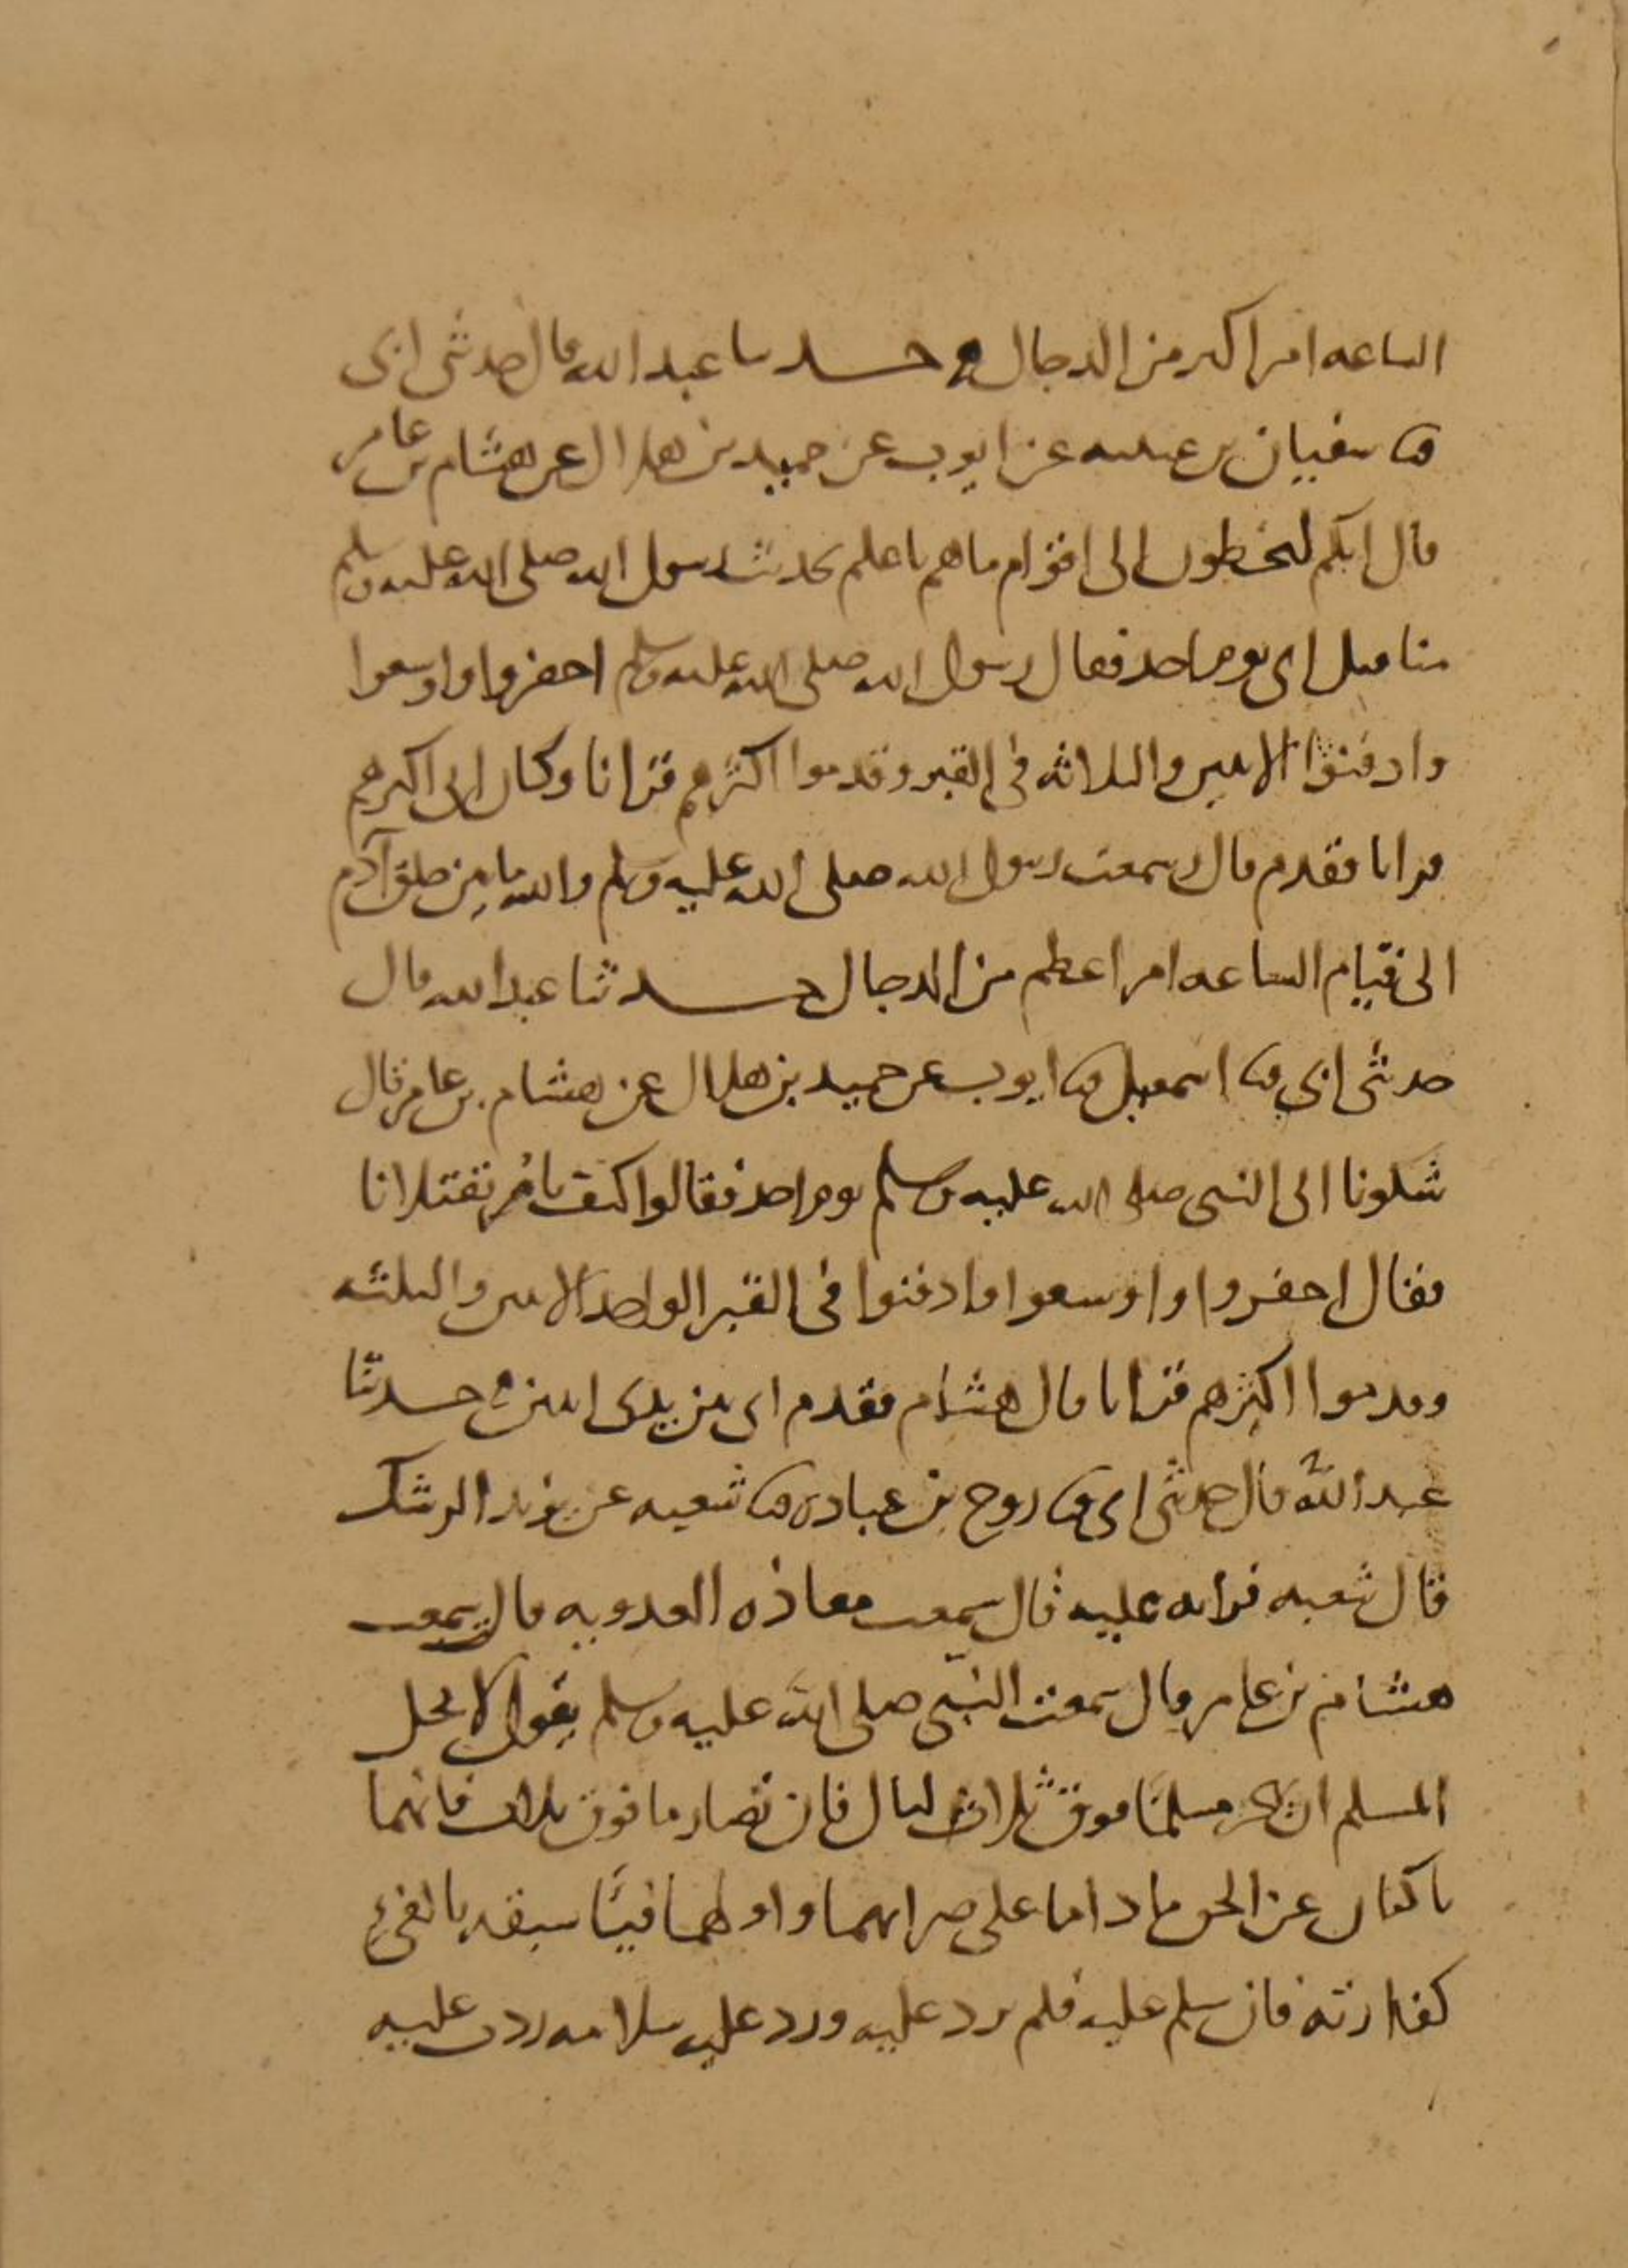 الساعه امر اكبر من الدجال حدثنا عبد الله قال حدثنى ابى
ثنا سفيان بن عيينه عن ايوب عن حميد بن هلال عن هشام بن عامر
قال انكم لتخطون الى اقوام ما هم باعلم بحديث رسول الله صلى الله عليه وسلم
منا قتل ابى يوم احد فقال رسول الله صلى الله عليه وسلم احفروا واوسعوا
وادفنوا الاثنين والثلاثه فى القبر وقدموا اكثرهم قرانا وكان ابى اكثرهم
قرانا فقدم قال سمعت رسول الله صلى الله عليه وسلم والله ما بين خلق آدم
الى قيام الساعه امر اعظم من الدجال حدثنا عبد الله قال
حدثنى ابى ثنا اسمعيل ثنا ايوب عن حميد بن هلال عن هشام بن عامر قال
شكونا الى النبى صلى الله عليه وسلم يوم احد فقالوا كيف تامر بقتلانا
فقال احفروا واوسعوا وادفنوا فى القبر الواحد الاثنين والثلثه
وقدموا اكثرهم قرانا قال هشام فقدم ابى بين يدى اثنين حدثنا
عبد الله قال حدثنى ابى ثنا روح بن عباده ثنا شعبه عن يزيد الرشك
قال شعبه قراته عليه قال سمعت معاذه العدويه قال سمعت
هشام بن عامر قال سمعت النبى صلى الله عليه وسلم يقول لا يحل
المسلم ان يهجر مسلمًا فوق ثلاث ليال فان تصارما فوق ثلاث فانهما
ناكبان عن الحق ما داما على صرامهما واولهما فيئًا سبقه بالفىء
كفارته فان سلم عليه فلم يرد عليه ورد عليه سلامه ردت عليه